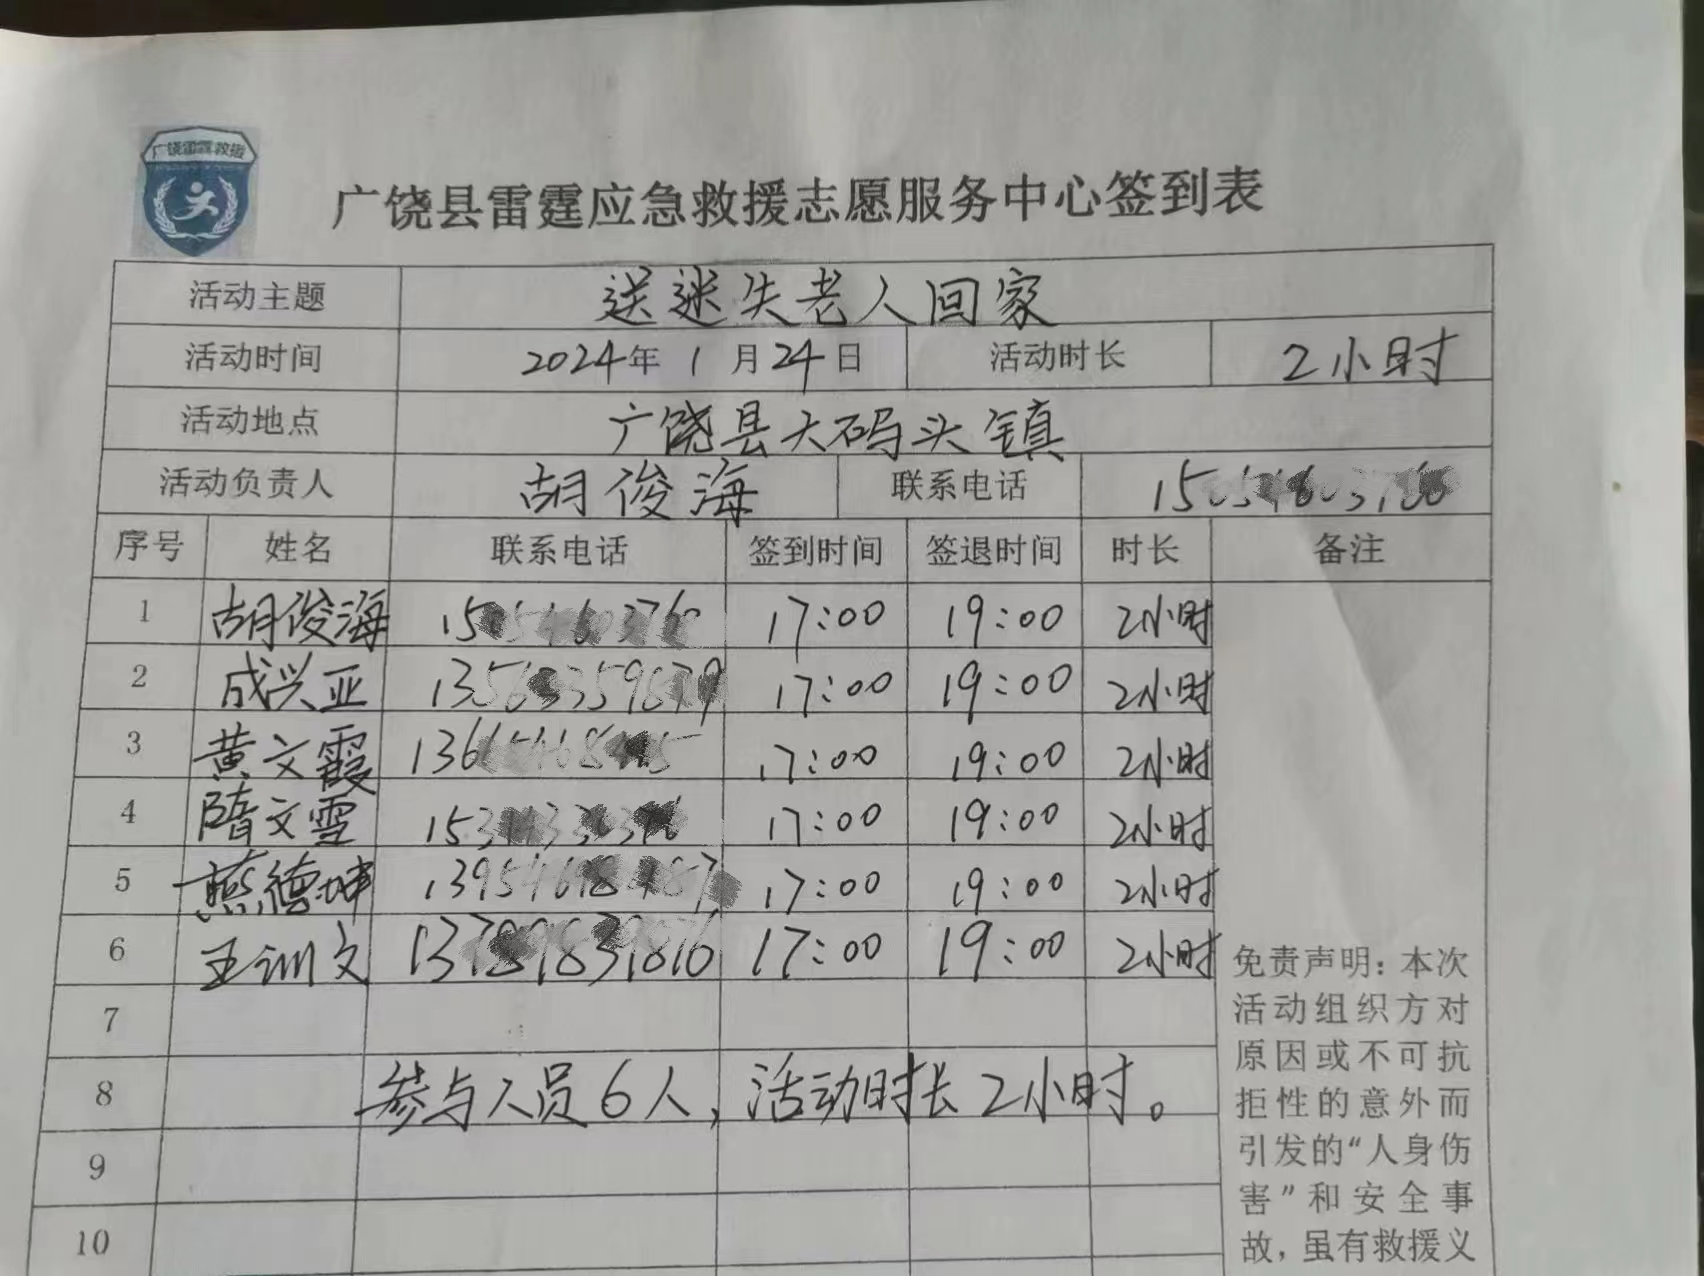 广饶雷霆救援
广饶县雷霆应急救援志愿服务中心签到表
活动主题 送迷失老人回家
活动时间 2024年1月24日 活动时长 2小时
活动地点 广饶县大码头镇
活动负责人 胡俊海 联系电话
序号 姓名 联系电话 签到时间 签退时间 时长 备注
1 胡俊海 17:00 19:00 2小时
2 成兴亚 17:00 19:00 2小时
3 黄文霞 17:00 19:00 2小时
4 隋文雪 17:00 19:00 2小时
5 燕德坤 17:00 19:00 2小时
6 王训文 17:00 19:00 2小时
7
8 参与人员6人，活动时长2小时。
9
10
免责声明：本次
活动组织方对
原因或不可抗
拒性的意外而
引发的“人身伤
害”和安全事
故，虽有救援义